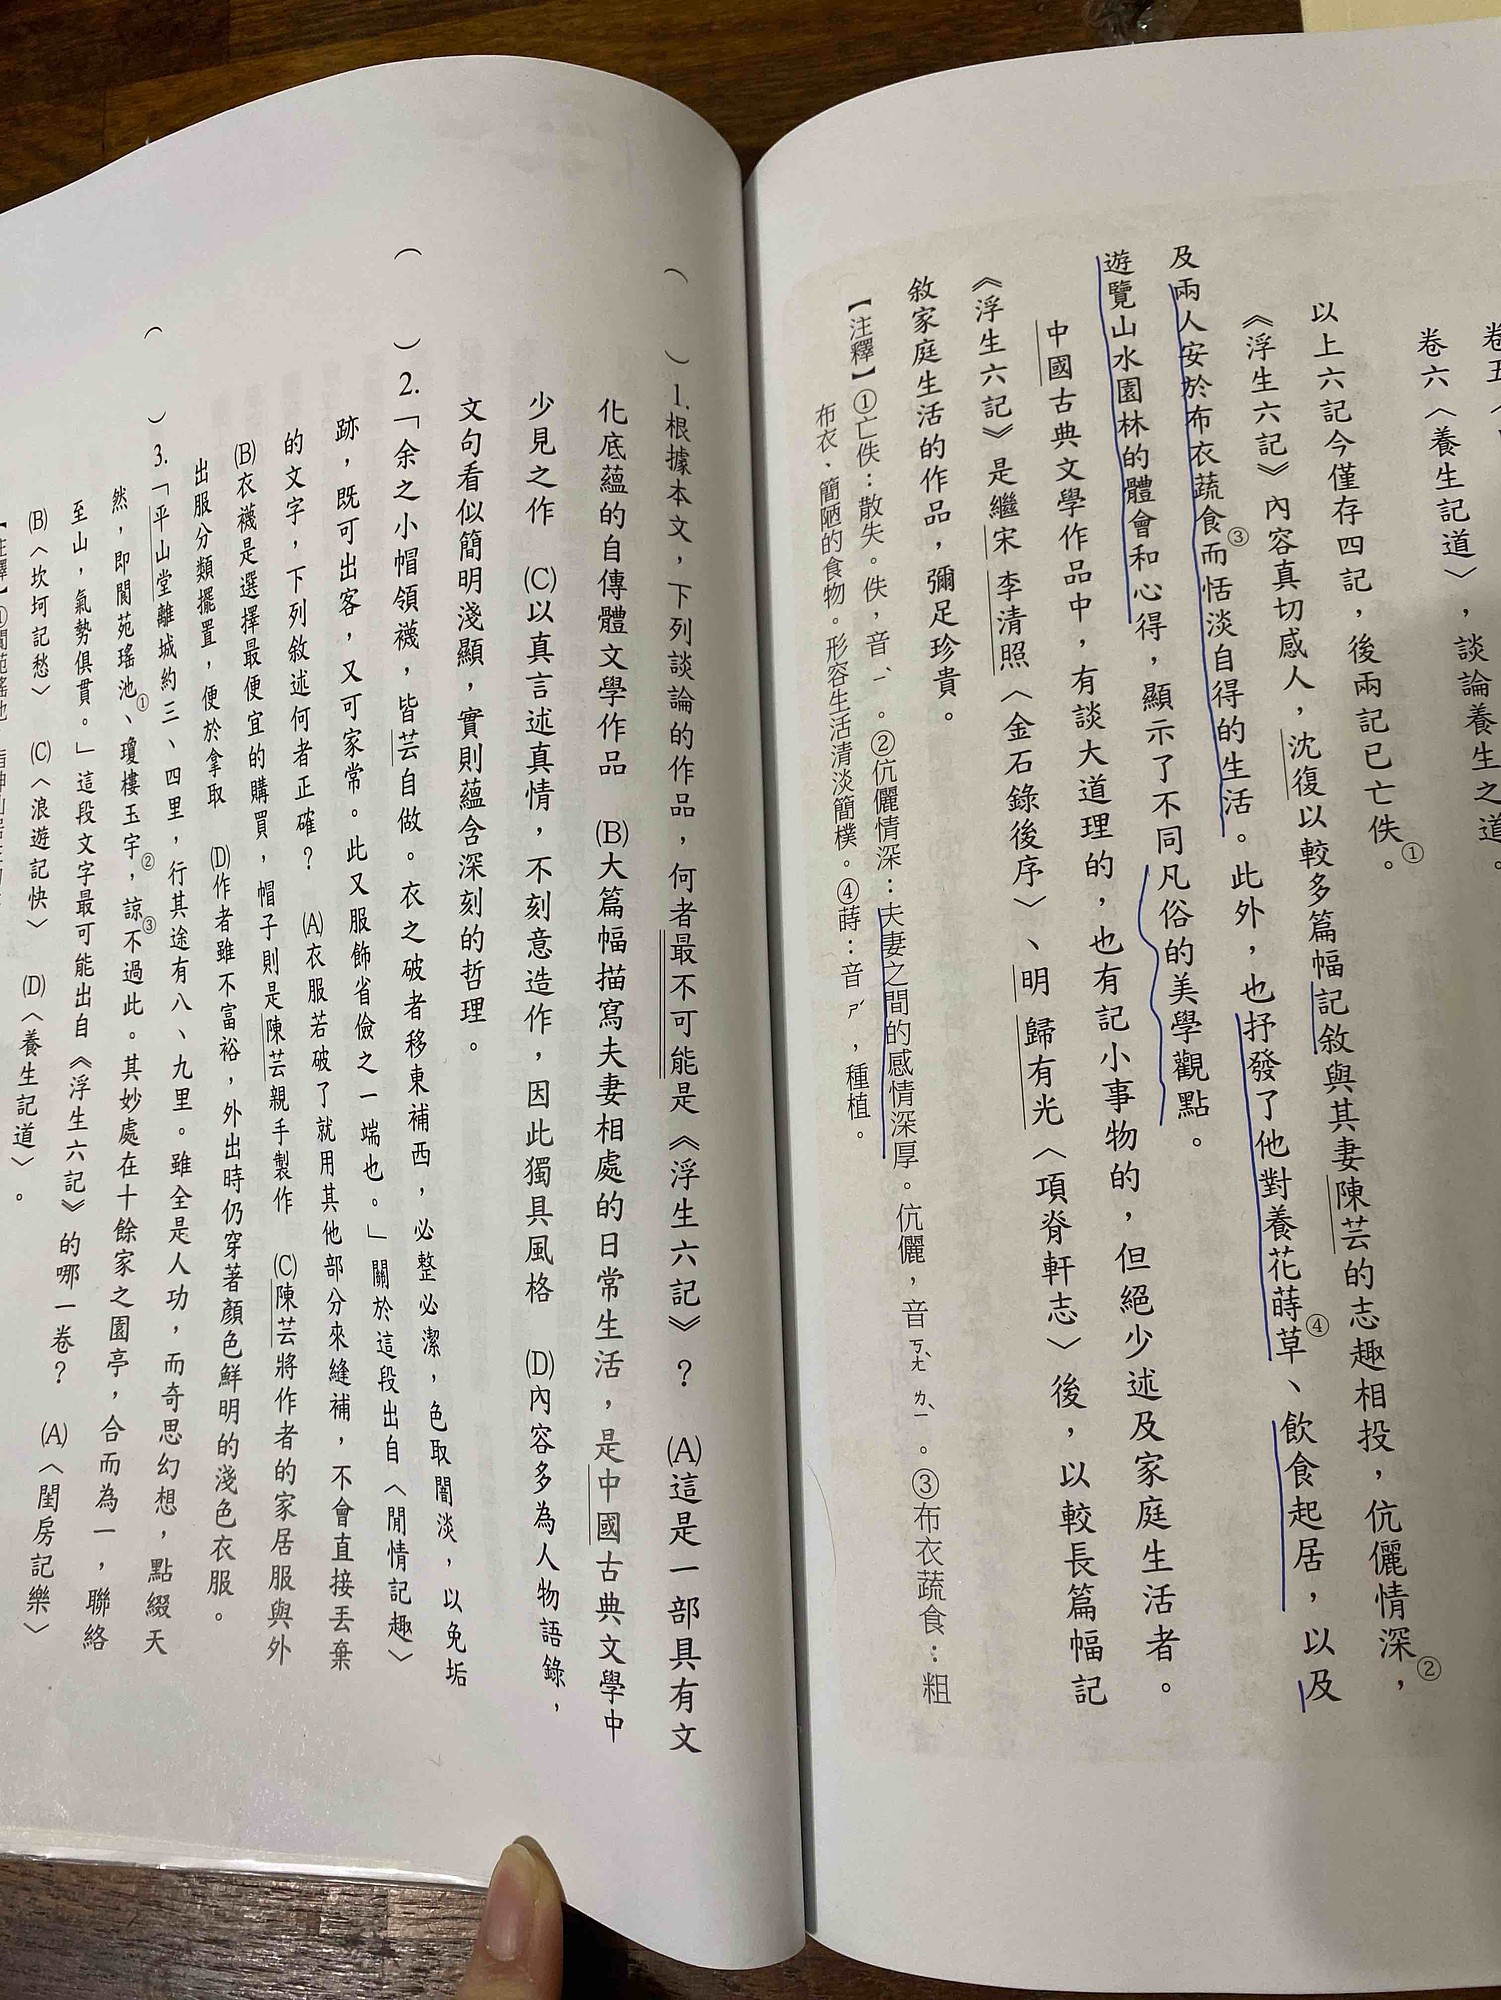 卷六〈養生記道〉，談論養生之道。
以上六記今僅存四記，後兩記已亡佚。①
《浮生六記》內容真切感人，沈復以較多篇幅記敘與其妻陳芸的志趣相投，伉儷情深，②
及兩人安於布衣蔬食③而恬淡自得的生活。此外，也抒發了他對養花蒔草④、飲食起居，以及
遊覽山水園林的體會和心得，顯示了不同凡俗的美學觀點。
中國古典文學作品中，有談大道理的，也有記小事物的，但絕少述及家庭生活者。
《浮生六記》是繼宋 李清照〈金石錄後序〉、明 歸有光〈項脊軒志〉後，以較長篇幅記
敘家庭生活的作品，彌足珍貴。
【注釋】①亡佚：散失。佚，音ㄧˋ。②伉儷情深：夫妻之間的感情深厚。伉儷，音ㄎㄤˋ ㄌㄧˋ。③布衣蔬食：粗
布衣、簡陋的食物。形容生活清淡簡樸。④蒔：音ㄕˊ，種植。
（　）1.根據本文，下列談論的作品，何者最不可能是《浮生六記》？　(A)這是一部具有文
化底蘊的自傳體文學作品　(B)大篇幅描寫夫妻相處的日常生活，是中國古典文學中
少見之作　(C)以真言述真情，不刻意造作，因此獨具風格　(D)內容多為人物語錄，
文句看似簡明淺顯，實則蘊含深刻的哲理。
（　）2.「余之小帽領襪，皆芸自做。衣之破者移東補西，必整必潔，色取闇淡，以免垢
跡，既可出客，又可家常。此又服飾省儉之一端也。」關於這段出自〈閒情記趣〉
的文字，下列敘述何者正確？　(A)衣服若破了就用其他部分來縫補，不會直接丟棄
(B)衣襪是選擇最便宜的購買，帽子則是陳芸親手製作　(C)陳芸將作者的家居服與外
出服分類擺置，便於拿取　(D)作者雖不富裕，外出時仍穿著顏色鮮明的淺色衣服。
（　）3.「平山堂離城約三、四里，行其途有八、九里。雖全是人功，而奇思幻想，點綴天
然，即閬苑瑤池①、瓊樓玉宇②，諒③不過此。其妙處在十餘家之園亭，合而為一，聯絡
至山，氣勢俱貫。」這段文字最可能出自《浮生六記》的哪一卷？　(A)〈閨房記樂〉
(B)〈坎坷記愁〉　(C)〈浪遊記快〉　(D)〈養生記道〉。